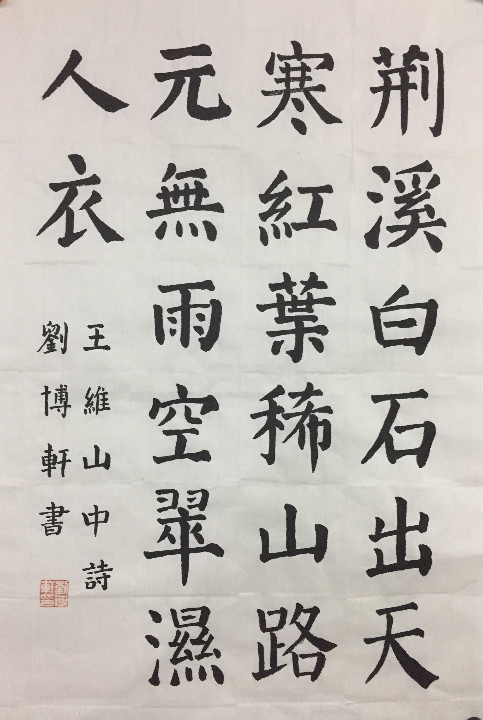 荆溪白石出天
寒紅葉稀山路
元無雨空翠濕
人衣
王維山中詩
劉博軒書